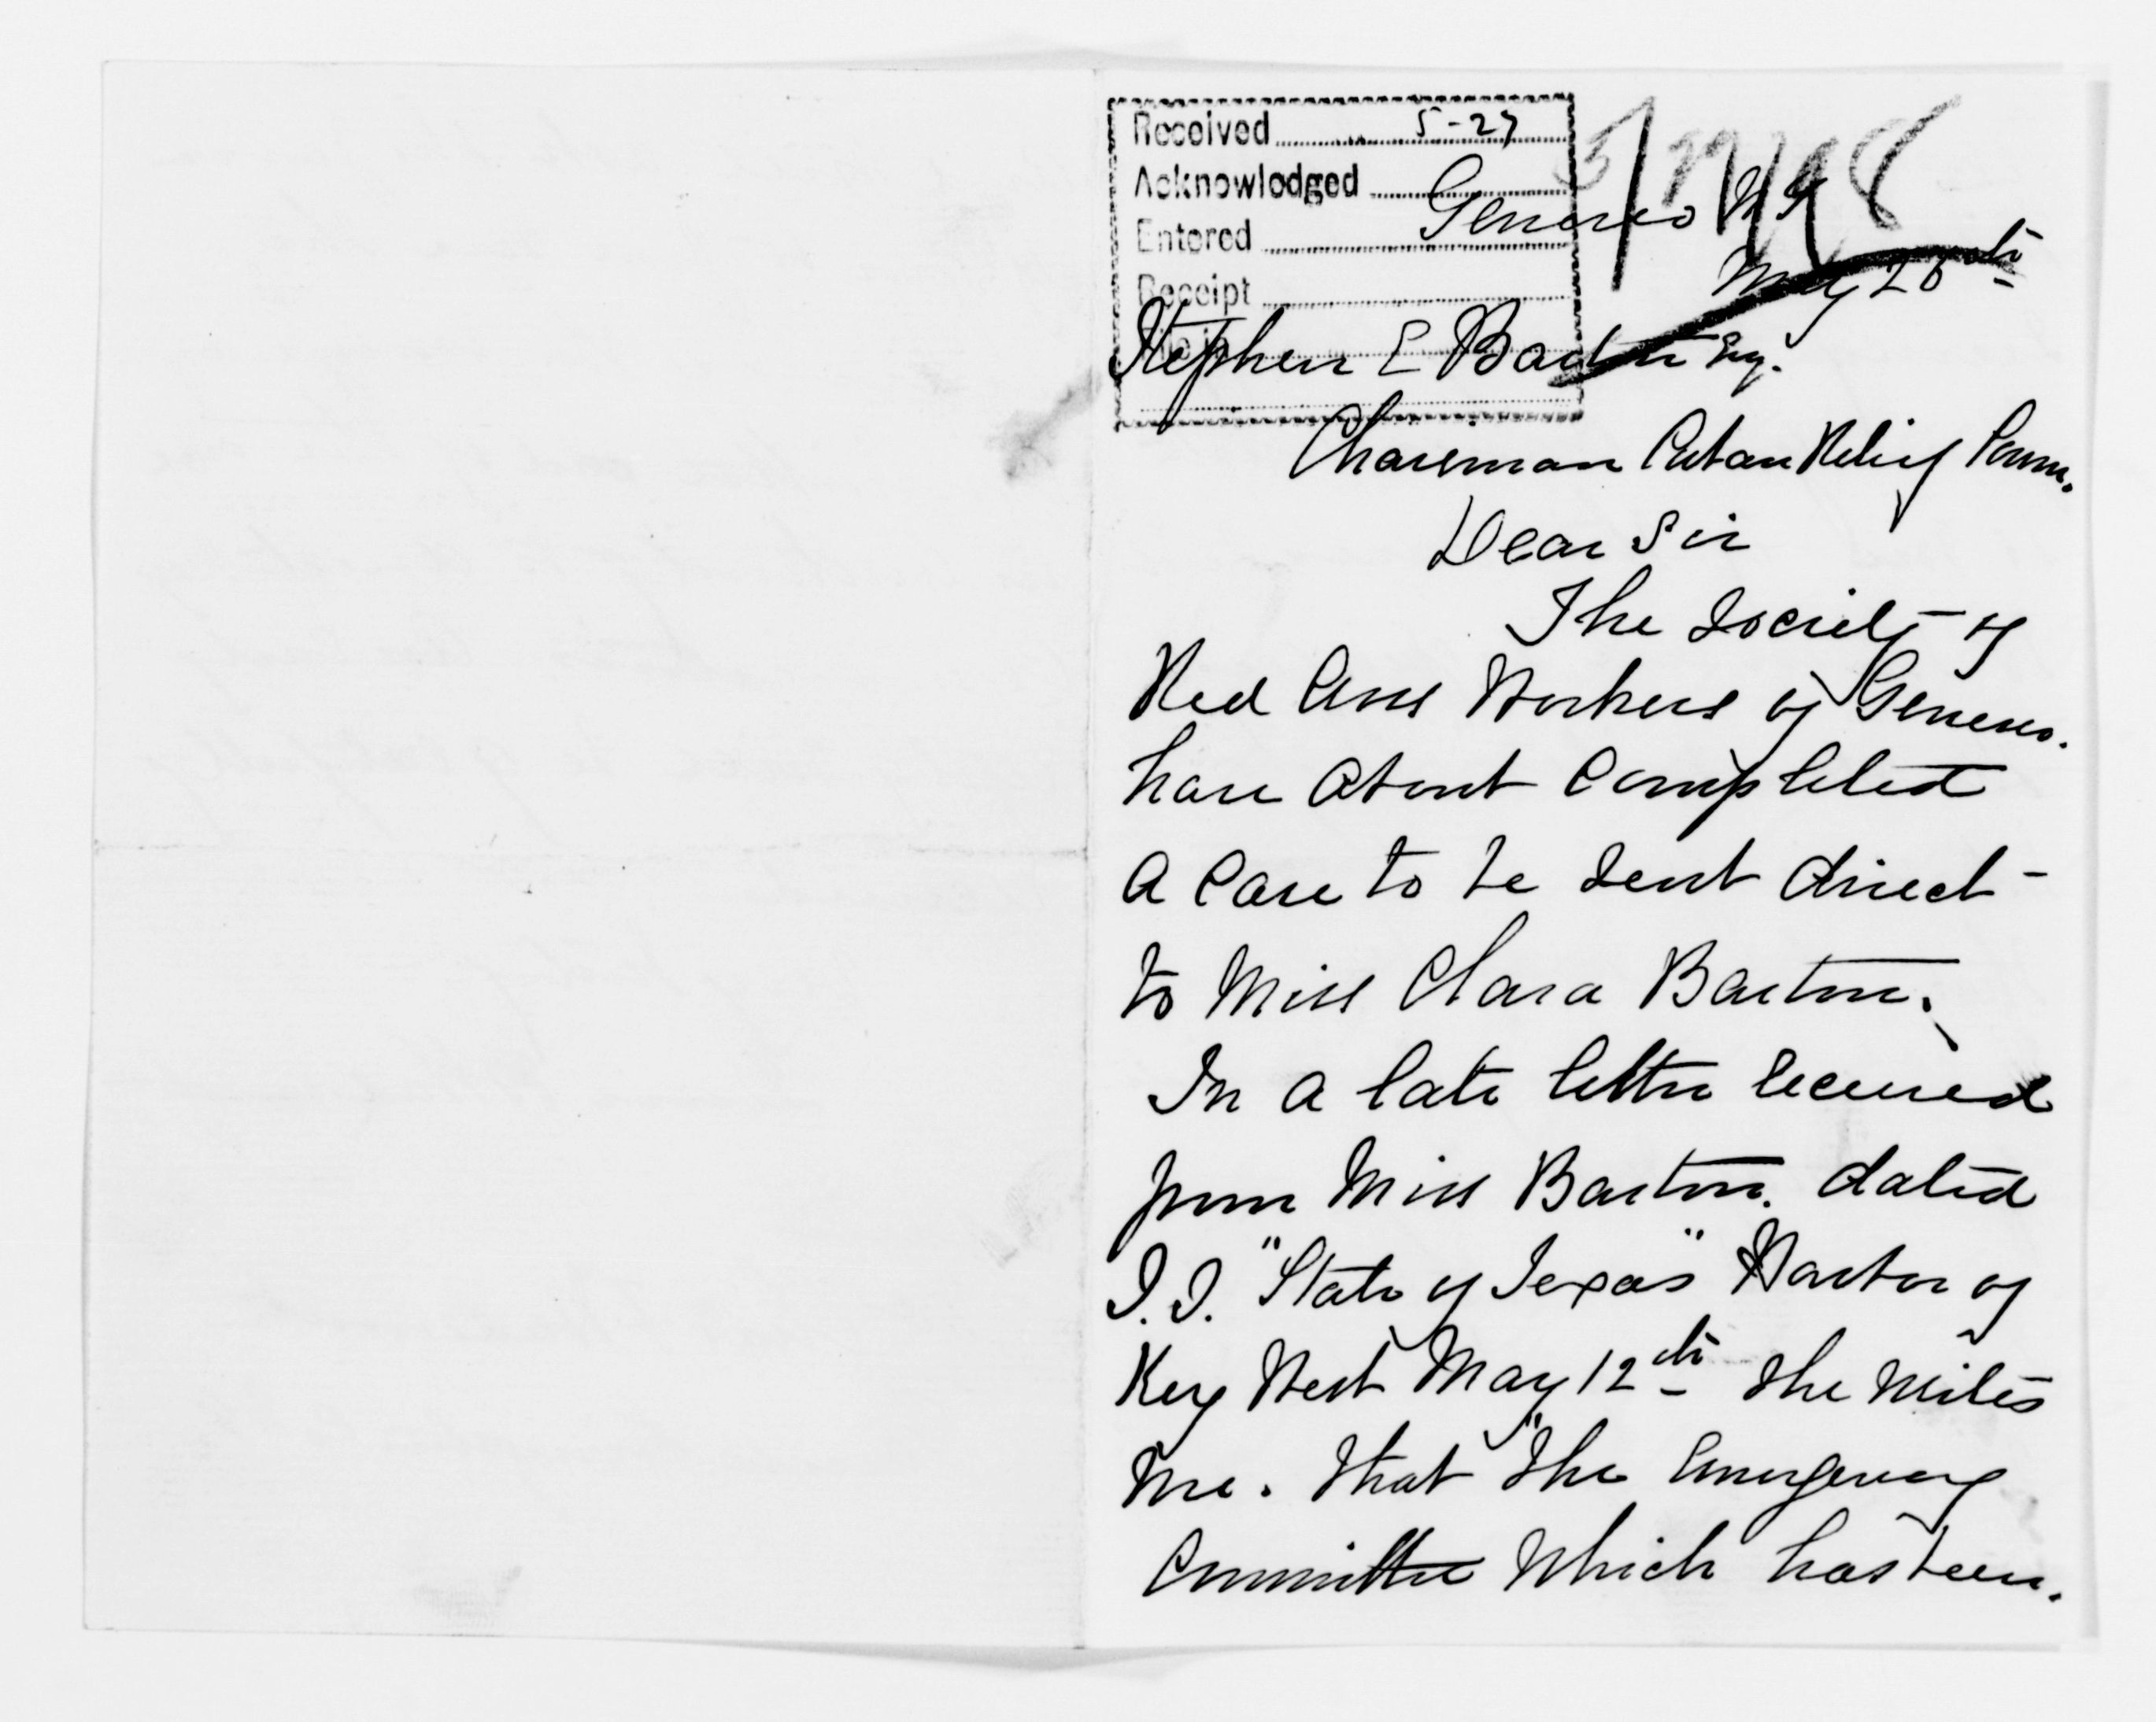 Received 5-27
Acknowledged
Entered
Receipt
File
5/27/98
Geneseo N Y
May 26th
Stephen E Barton Esq.
Chairman Cuban Relief Comm.
Dear Sir
The Society of
Red Cross Workers of Geneseo.
have about completed
a case to be sent direct
to Miss Clara Barton.
In a late letter received
from Miss Barton. dated
S.S. "State of Texas" Harbor of
Key West May 12th she writes
me. that "the Emergency
Committee which has been.